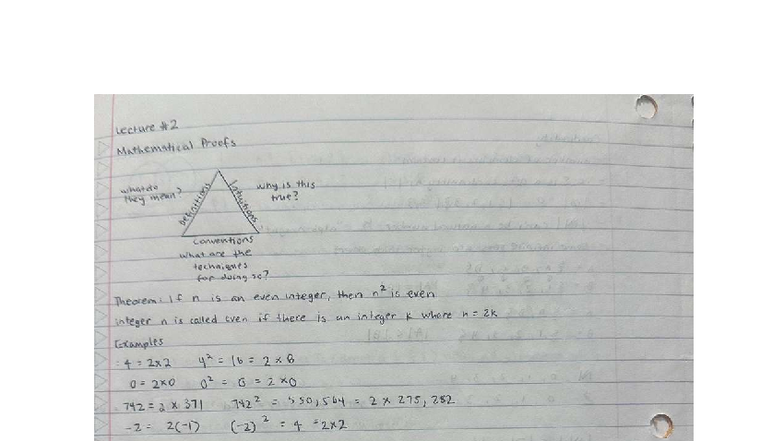 Lecture #2
Mathematical Proofs
what do they mean?
Definitions
Intuitions
why is this true?
conventions
what are the
techniques
for doing so?
Theorem: If n is an even integer, then n² is even
integer n is called even if there is an integer k where n = 2k
Examples
4 = 2×2 4² = 16 = 2 × 8
0 = 2×0 0² = 0 = 2×0
742 = 2 × 371 742² = 550,564 = 2 × 275,282
-2 = 2(-1) (-2)² = 4 = 2×2